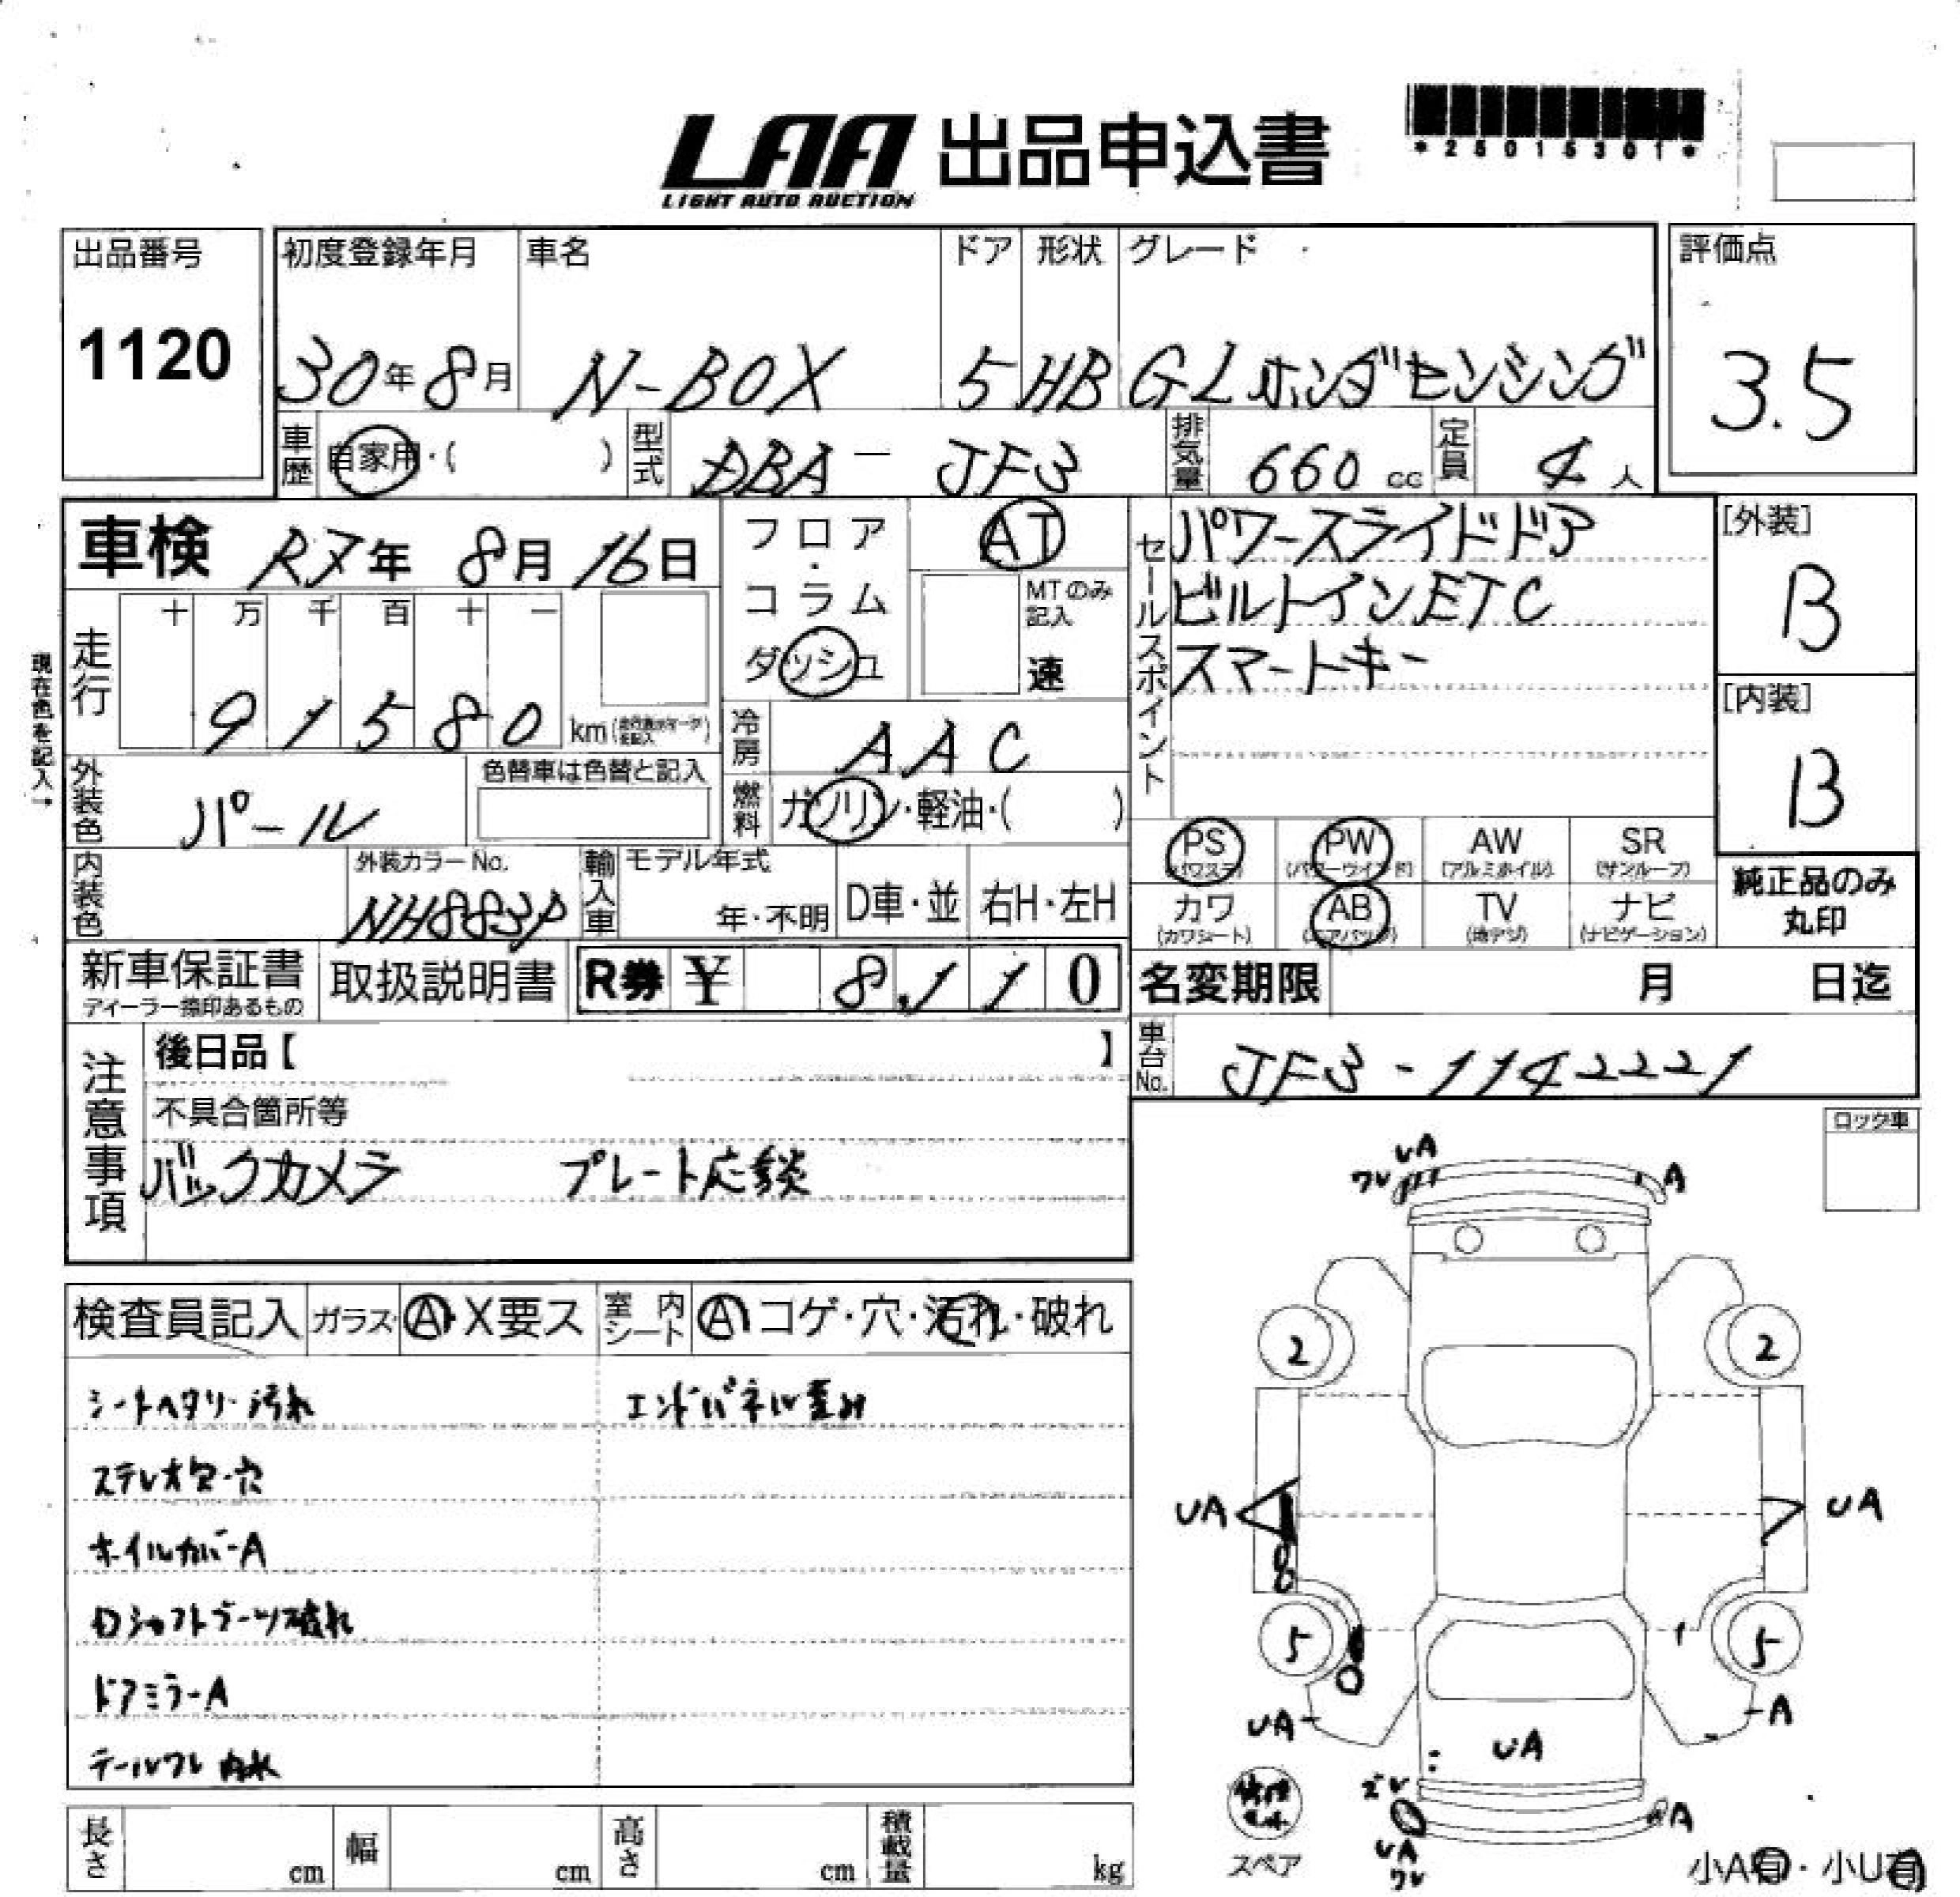 LAA 出品申込書
LIGHT AUTO AUCTION
*25015301*
出品番号
1120
初度登録年月
30年8月
車名
N-BOX
ドア
5
形状
HB
グレード
GLホンダセンシング
評価点
3.5
車歴
自家用・( )
型式
DBA-JF3
排気量
660cc
定員
4人
車検 R7年8月16日
フロア・コラム
ダッシュ
AT
MTのみ記入
速
セールスポイント
パワースライドドア
ビルトインETC
スマートキー
[外装]
B
[内装]
B
現在色を記入→
走行
十 万 千 百 十 一
91580 km
冷房
AAC
燃料
ガソリン・軽油・( )
外装色
パール
色替車は色替と記入
内装色
外装カラーNo.
NH883P
輸入車
モデル年式
年・不明
D車・並
右H・左H
PS (パワステ)
PW (パワーウインド)
AW (アルミホイル)
SR (サンルーフ)
カワ (カワシート)
AB (エアバッグ)
TV (地デジ)
ナビ (ナビゲーション)
純正品のみ
丸印
新車保証書
ディーラー捺印あるもの
取扱説明書
R券 ¥ 8,110
名変期限 月 日迄
車台No.
JF3-1142221
注意事項
後日品【 】
不具合箇所等
バックカメラ プレート応談
ロック車
検査員記入
ガラス A・X要ス
室内シート A コゲ・穴・汚れ・破れ
シートヘタリ・汚れ
エンドパネル歪み
ステレオ欠・穴
ホイルカバーA
Dシャフトブーツ破れ
ドアミラーA
テールワレ 内水
UA
ワレ
A
2
2
UA
UA
5
5
UA
A
UA
ズレ
A
UA
ワレ
スペア
小A有・小U有
長さ cm
幅 cm
高さ cm
積載量 kg